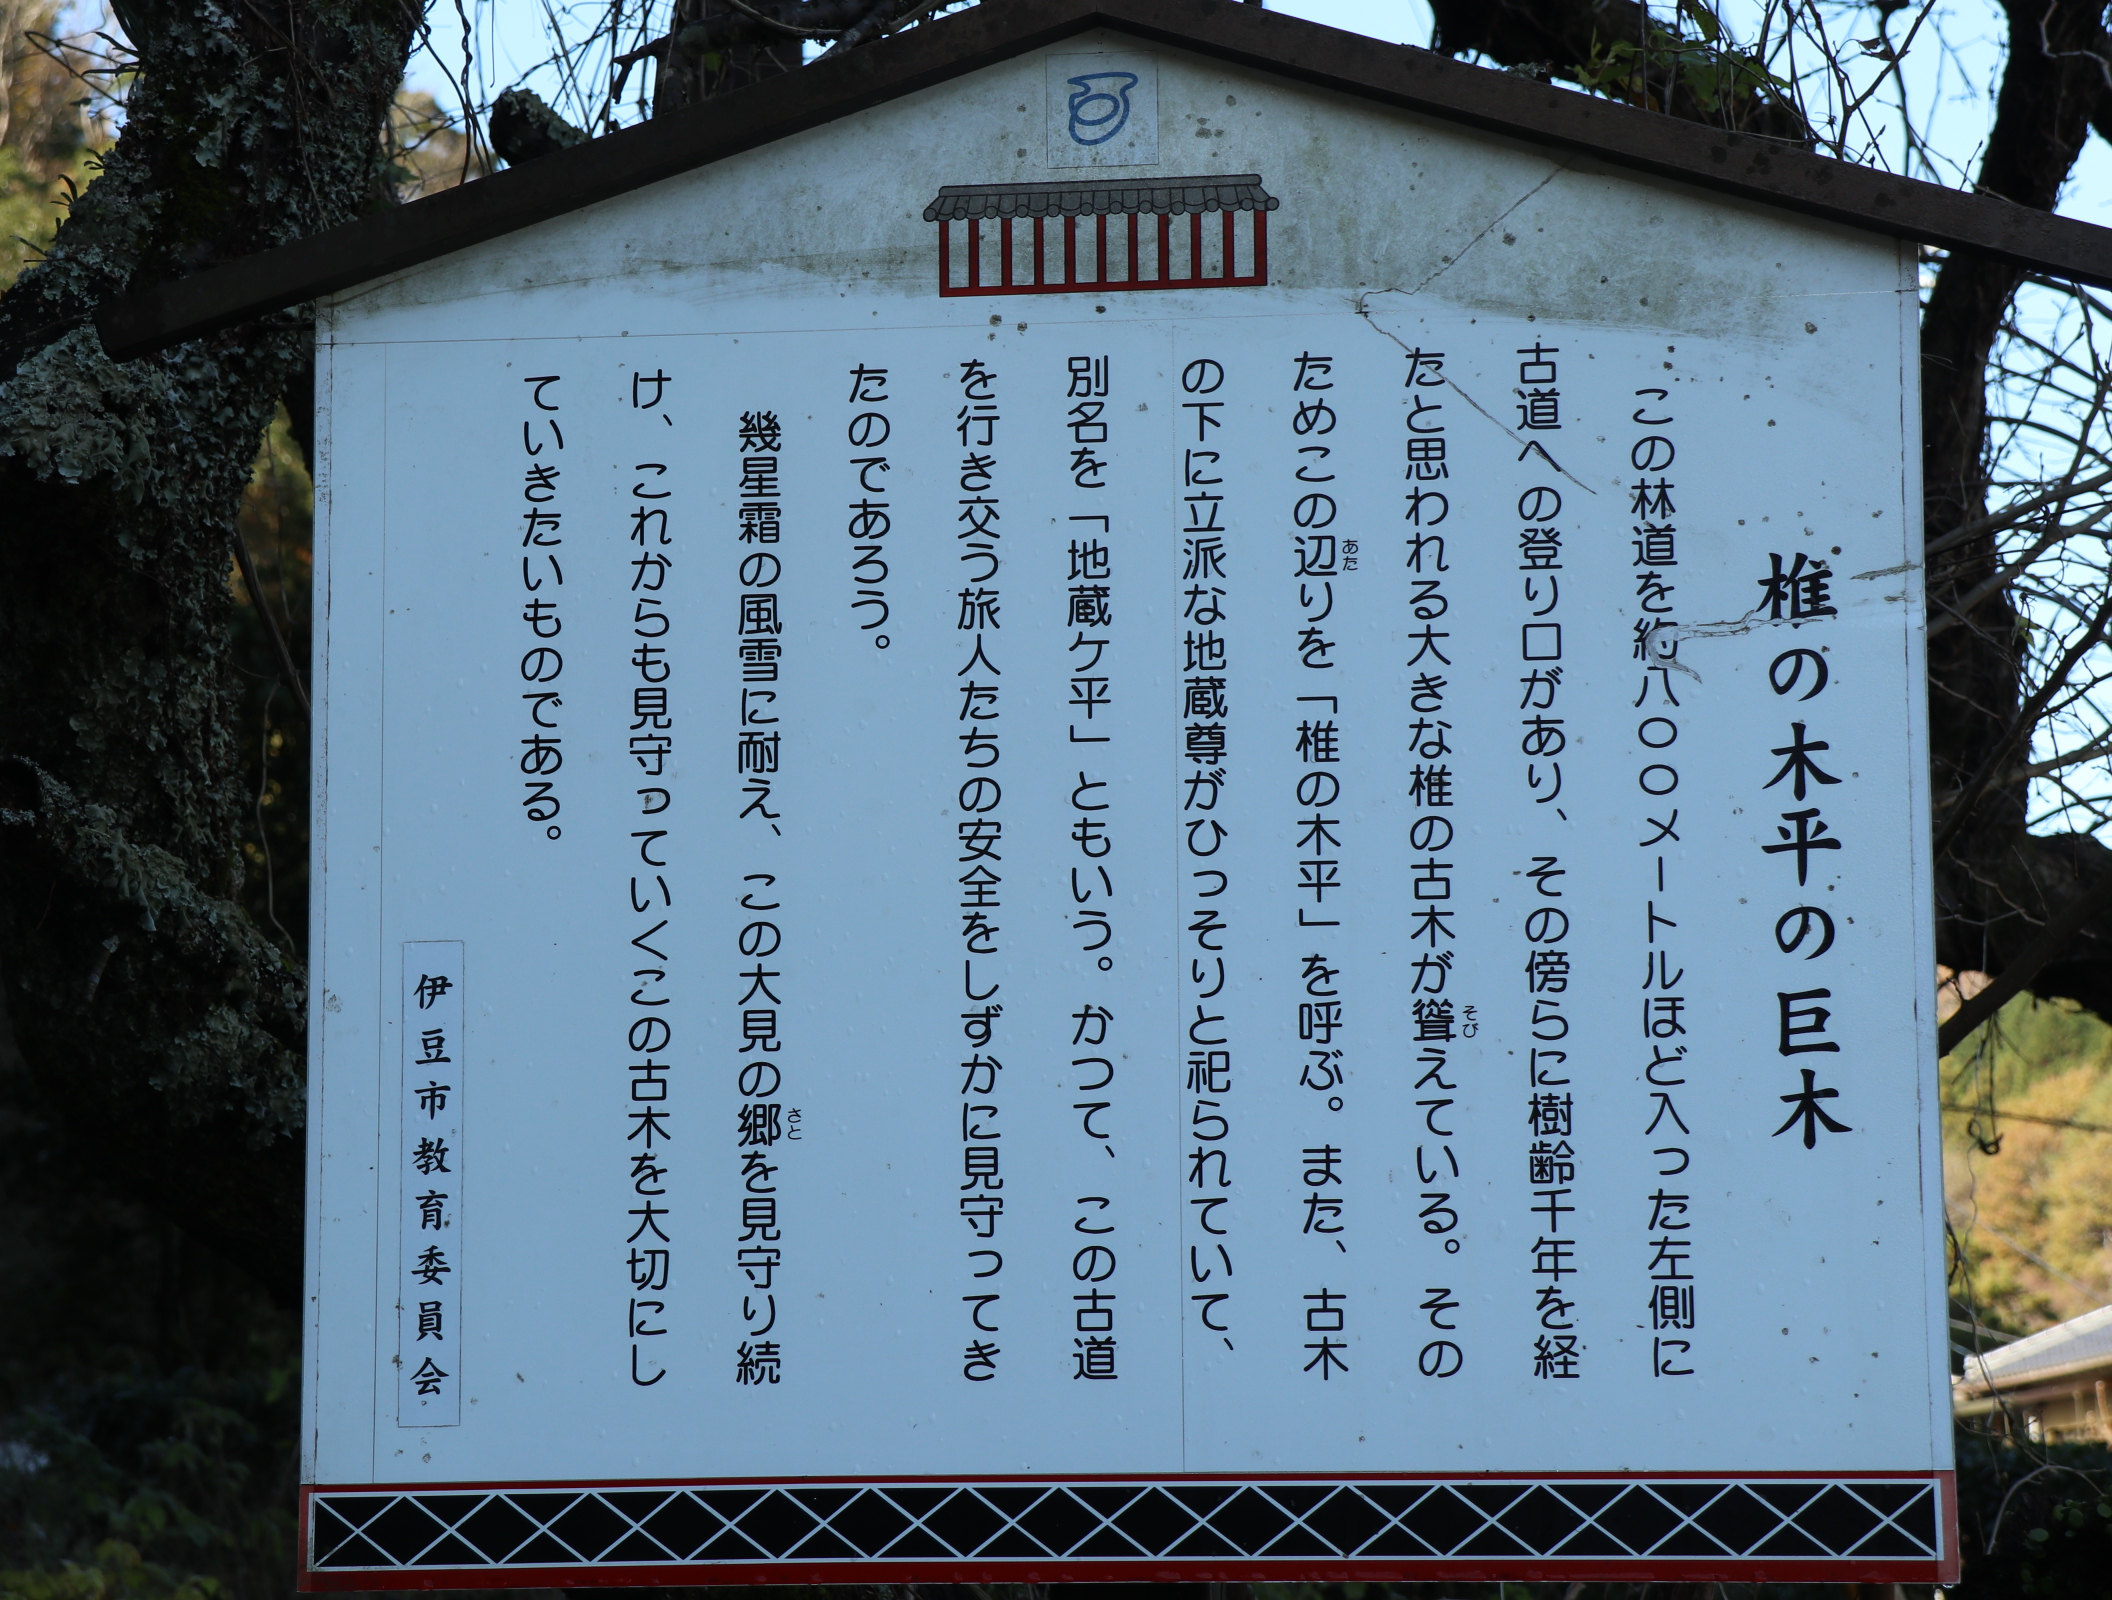 椎の木平の巨木
この林道を約八〇〇メートルほど入った左側に
古道への登り口があり、その傍らに樹齢千年を経
たと思われる大きな椎の古木が聳えている。その
そび
ためこの辺りを「椎の木平」を呼ぶ。また、古木
あた
の下に立派な地蔵尊がひっそりと祀られていて、
別名を「地蔵ケ平」ともいう。かつて、この古道
を行き交う旅人たちの安全をしずかに見守ってき
たのであろう。
幾星霜の風雪に耐え、この大見の郷を見守り続
さと
け、これからも見守っていくこの古木を大切にし
ていきたいものである。
伊豆市教育委員会